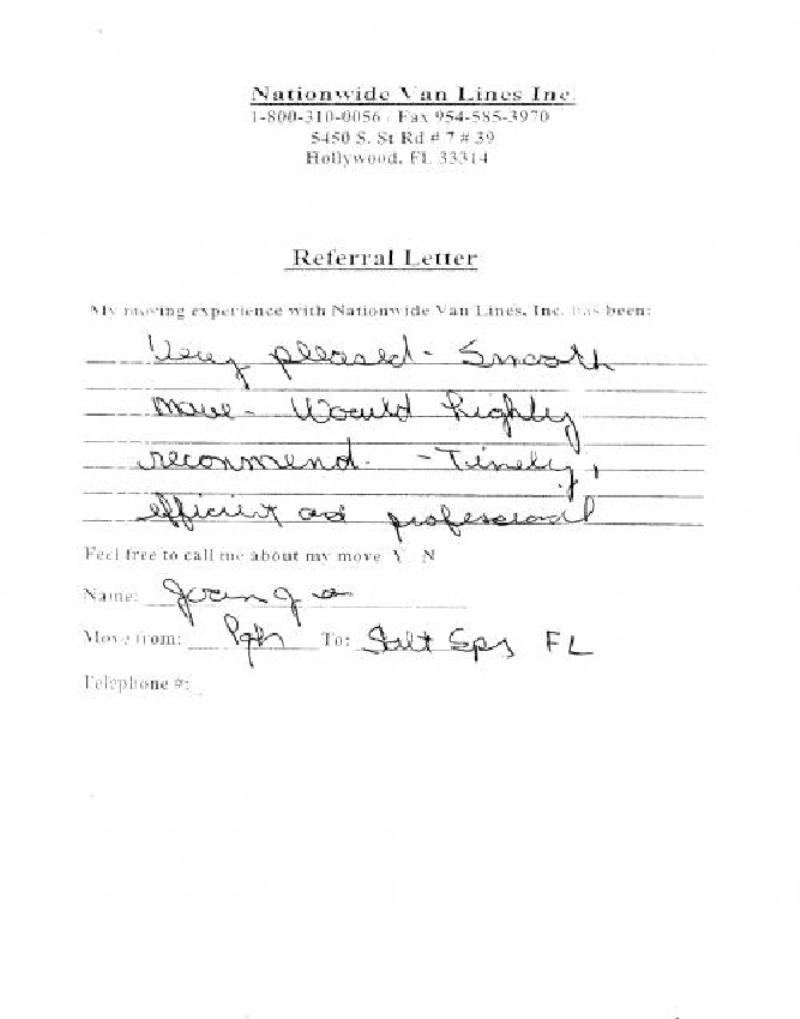 Nationwide Van Lines Inc.
1-800-310-0056 / Fax 954-585-3970
5450 S. St Rd # 7 # 39
Hollywood, FL 33314
Referral Letter
My moving experience with Nationwide Van Lines, Inc. has been:
Very pleased - Smooth
move - Would highly
recommend. - Timely,
efficient and professional
Feel free to call me about my move Y N
Name:
Move from: Pgh To: Salt Sps FL
Telephone #: